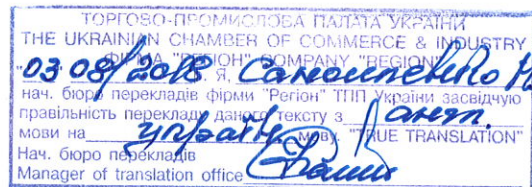 ТОРГОВО-ПРОМИСЛОВА ПАЛАТА УКРАЇНИ
THE UKRAINIAN CHAMBER OF COMMERCE & INDUSTRY
ФІРМА "РЕГІОН" COMPANY "REGION"
03 08/2018 Я,
нач. бюро перекладів фірми "Регіон" ТПП України засвідчую
правільність перекладу даного тексту з англ.
мови на україн. мову. "TRUE TRANSLATION"
Нач. бюро перекладів
Manager of translation office